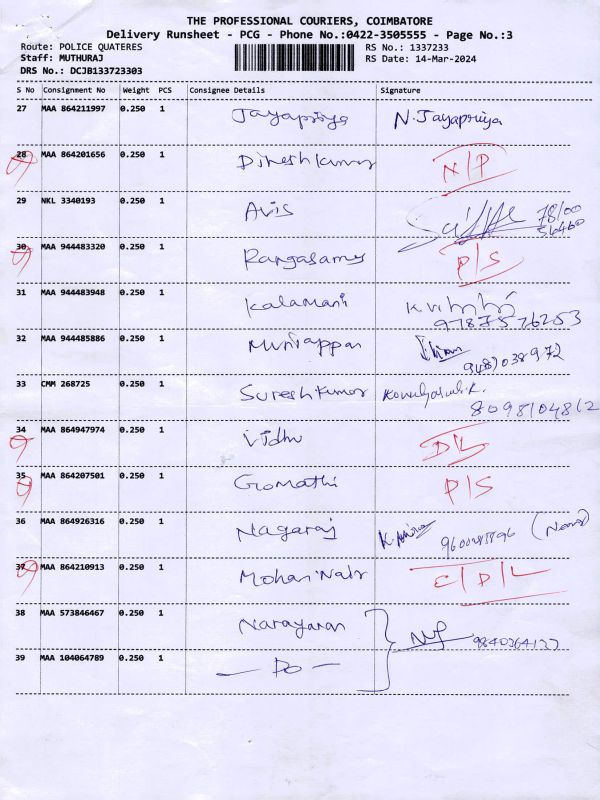 THE PROFESSIONAL COURIERS, COIMBATORE
Delivery Runsheet - PCG - Phone No.:0422-3505555 - Page No.:3
Route: POLICE QUATERES RS No.: 1337233
Staff: MUTHURAJ RS Date: 14-Mar-2024
DRS No.: DCJB133723303
S No Consignment No Weight PCS Consignee Details Signature
27 MAA 864211997 0.250 1 Jayapriya N.Jayapriya
28 MAA 864201656 0.250 1 Dineshkumar N/P
29 NKL 3340193 0.250 1 Avis 78100
56460
30 MAA 944483320 0.250 1 Rangasamy P/S
31 MAA 944483948 0.250 1 Kalamani
9787576253
32 MAA 944485886 0.250 1 Muniappan
9487038972
33 CMM 268725 0.250 1 Sureshkumar
8098104812
34 MAA 864947974 0.250 1 Vidhu D/L
35 MAA 864207501 0.250 1 Gomathi P/S
36 MAA 864926316 0.250 1 Nagaraj
37 MAA 864210913 0.250 1 Mohan Nair C/D/L
38 MAA 573846467 0.250 1 Narayanan
9840364137
39 MAA 104064789 0.250 1 — Do —